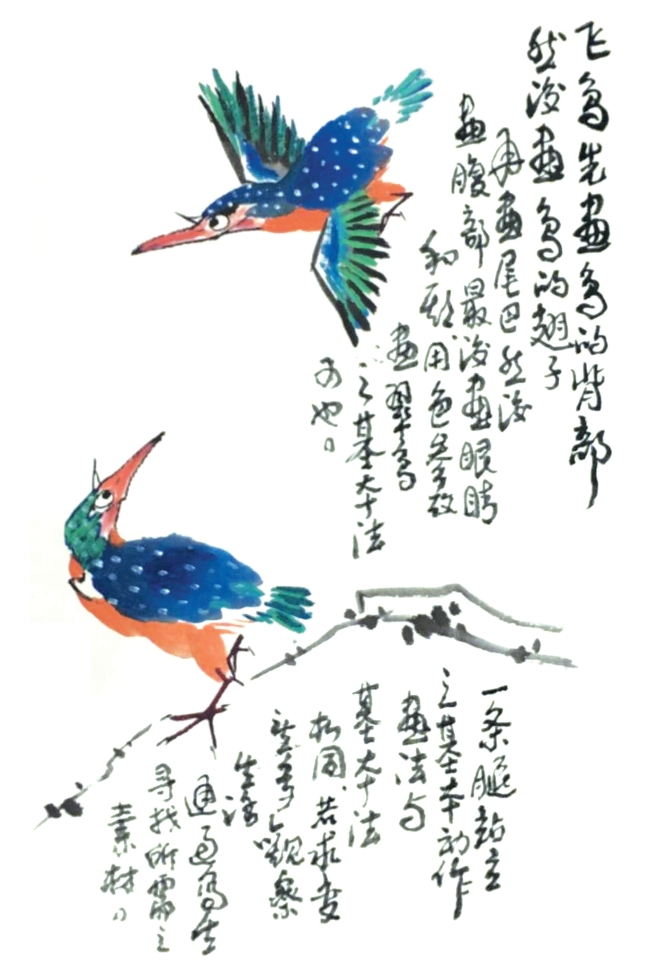 飞鸟先畫鸟的背部
然後畫鸟的翅子
再畫尾巴然後
畫腹部最後畫眼睛
和用色参攷
畫翠鸟
之基本法
可也
一条腿站立
之基本动作
畫法与
基本法
相同若求变
多觀察
生活
通过写生
寻找所需之
素材